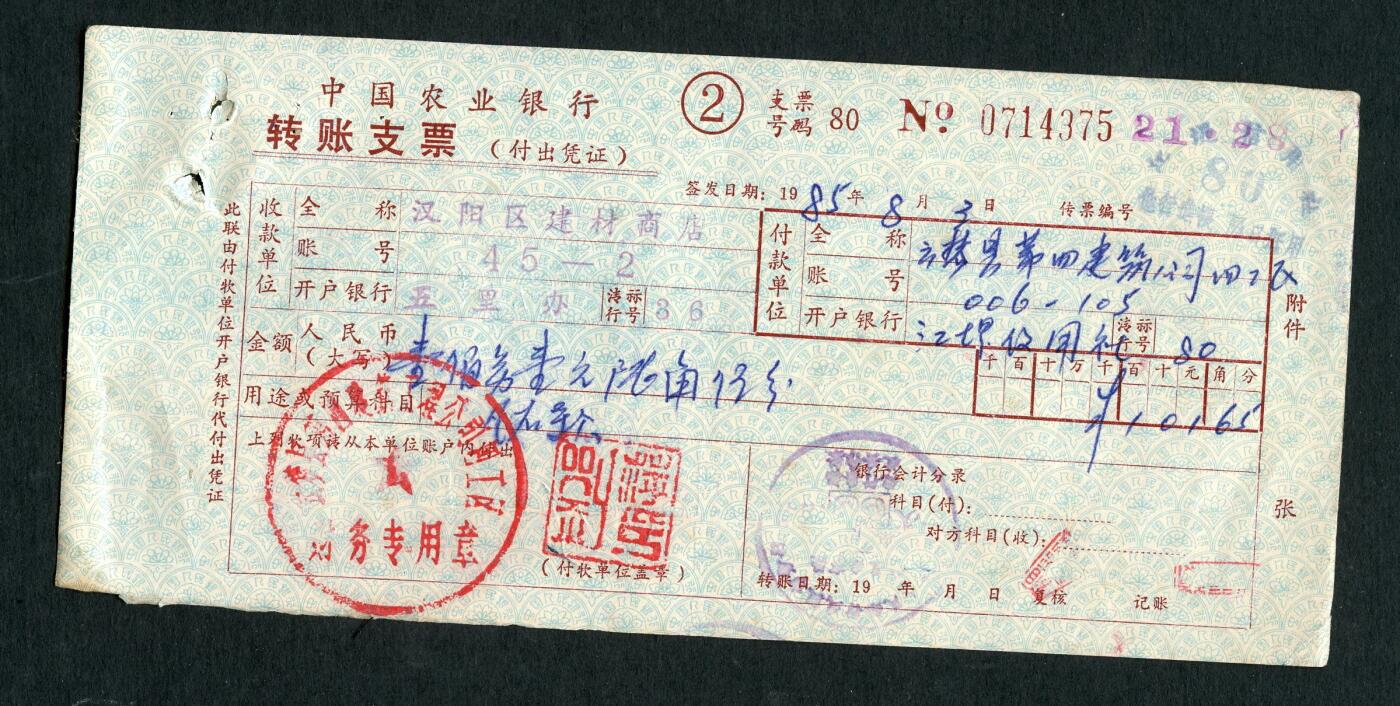 中国农业银行
转账支票 (付出凭证)
② 支票号码 80 No. 0714375
21·28
签发日期: 1985年8月3日 传票编号
此联由付款单位开户银行代付出凭证
收款单位
全称 汉阳区建材商店
账号 45—2
开户银行 五里办 清算行号 36
付款单位
全称 县第四建筑公司四工区
账号 006-105
开户银行 信用社 行号 80
金额 人民币(大写) 壹佰零壹元陆角伍分
千百十万千百十元角分
¥10165
用途或预算科目
上列款项请从本单位账户内付出
财务专用章
(付款单位盖章)
银行会计分录
科目(付):
对方科目(收):
转账日期: 19 年 月 日 复核 记账
附件
张